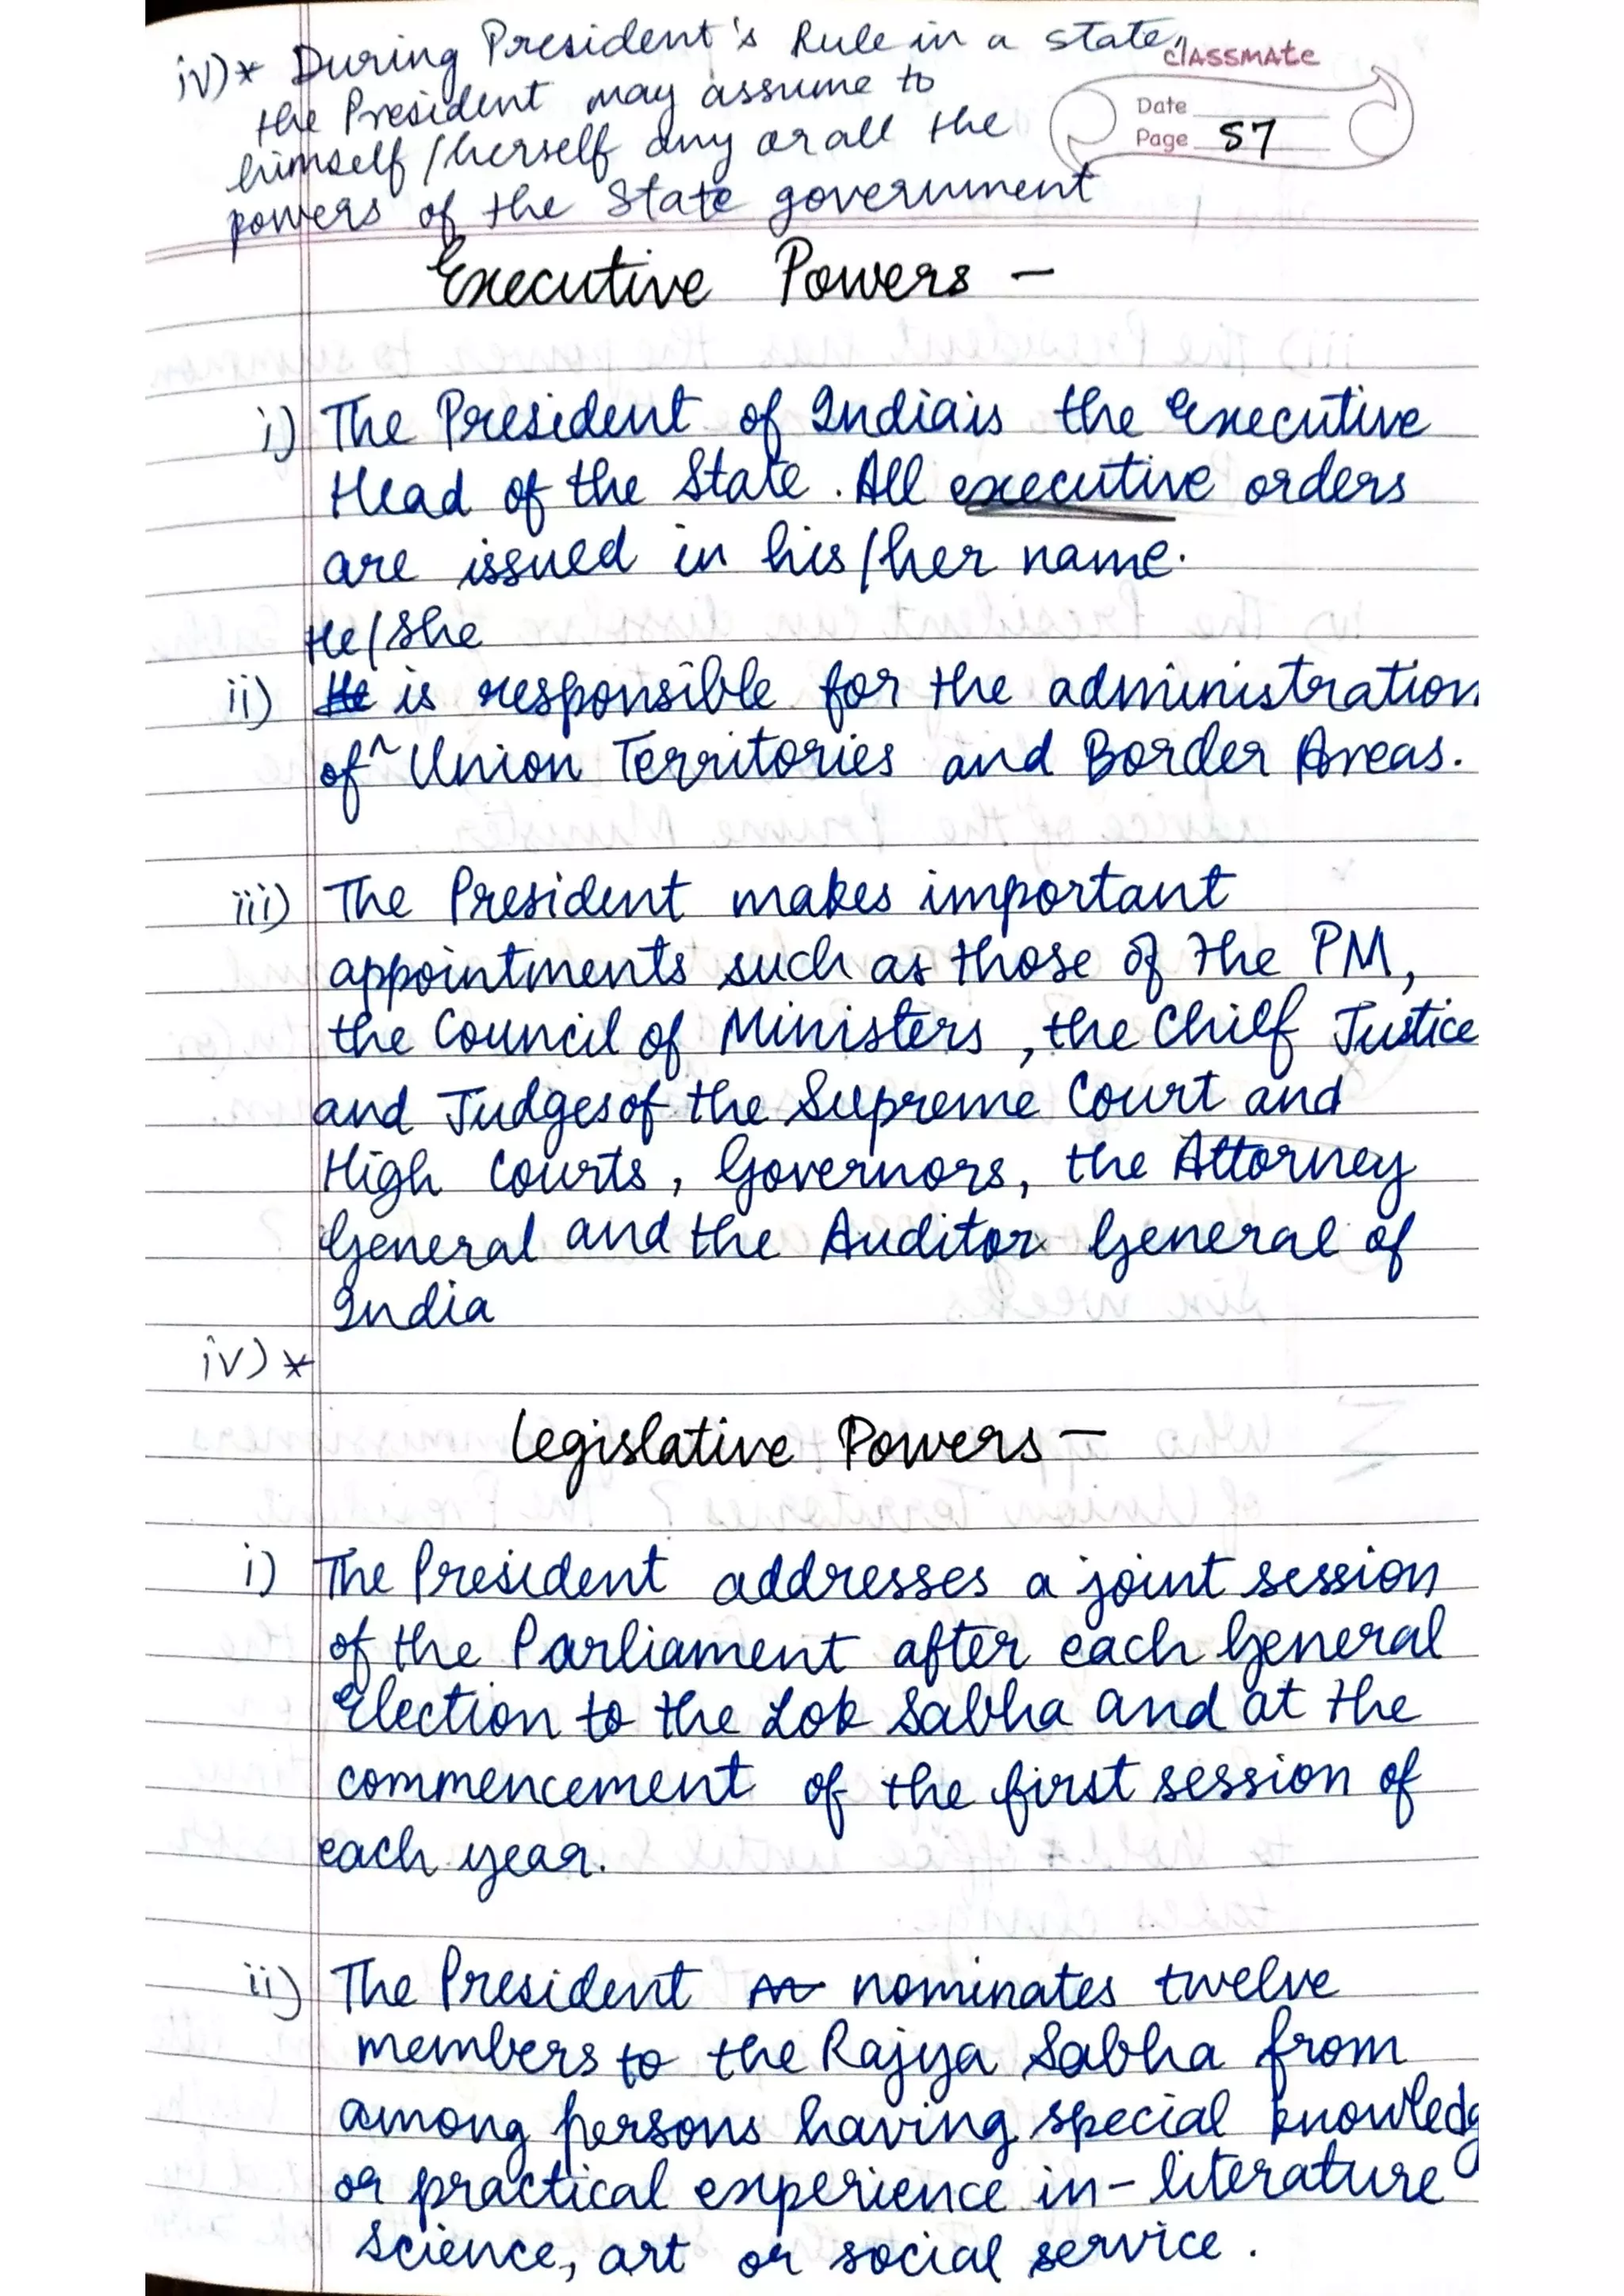 iv)* During President's Rule in a state,
classmate
the President may assume to
Date
himself/herself any or all the
Page 57
powers of the State government
Executive Powers -
i) The President of India is the Executive
Head of the State. All executive orders
are issued in his/her name.
He/She
ii) He is responsible for the administration
of ^ Union Territories and Border Areas.
iii) The President makes important
appointments such as those of the PM,
the Council of Ministers, the Chief Justice
and Judges of the Supreme Court and
High Courts, Governors, the Attorney
General and the Auditor General of
India
iv)*
Legislative Powers -
i) The President addresses a joint session
of the Parliament after each General
Election to the Lok Sabha and at the
commencement of the first session of
each year.
ii) The President nominates twelve
members to the Rajya Sabha from
among persons having special knowledg
or practical experience in - literature
science, art or social service.